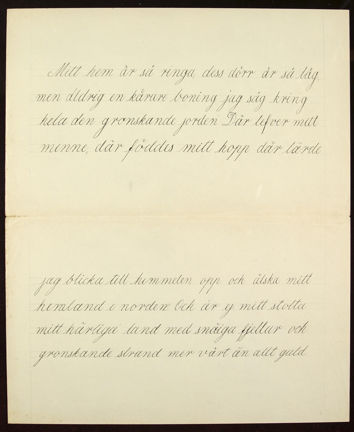 Mitt hem är så ringa, dess dörr är så låg
men aldrig en kärare boning jag såg kring
hela den grönskande jorden Där lefver mitt
minne, där föddes mitt hopp där lärde
jag blicka till himmelen opp och älska mitt
hemland i norden Och är ej mitt stolta
mitt härliga land med snöiga fjellar och
grönskande strand mer värt än allt guld